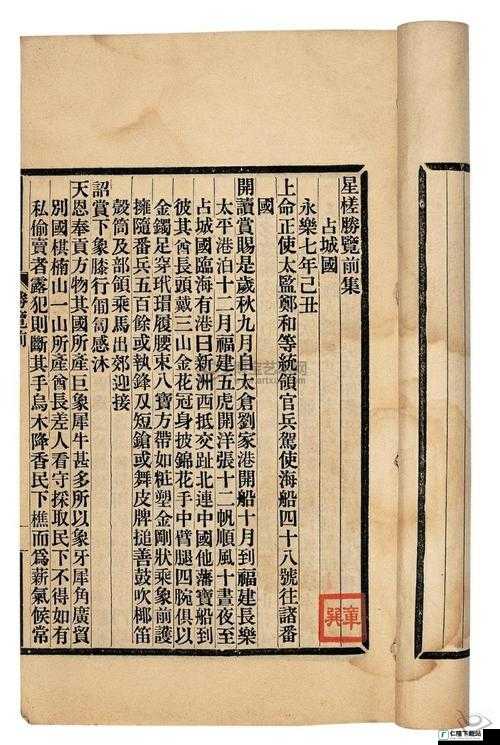 星槎勝覽前集
占城國
永樂七年己丑
上命正使太監鄭和等統領官兵駕使海船四十八號往諸番
國
開讀賞賜是歲秋九月自太倉劉家港開船十月到福建長樂
太平港泊十二月福建五虎開洋張十二帆順風十晝夜至
占城國臨海有港曰新洲西抵交趾北連中國他藩寶船到
彼其酋長頭戴三山金花冠身披錦花手巾臂腿四腕俱以
金鐲足穿玳瑁履腰束八寶方帶如粧塑金剛狀乘象前護
擁隨番兵五百餘或執鋒刃短鎗或舞皮牌搥善鼓吹椰笛
殼筒及部領乘馬出郊迎接
詔賞下象膝行匍匐感沐
天恩奉貢方物其國所產巨象犀牛甚多所以象牙犀角廣貿
別國棋楠山一山所產酋長差人看守採取民下不得如有
私偷賣者露犯則斷其手烏木降香民下樵而為薪氣候常
勝覽前
章巽
仁隆下載站